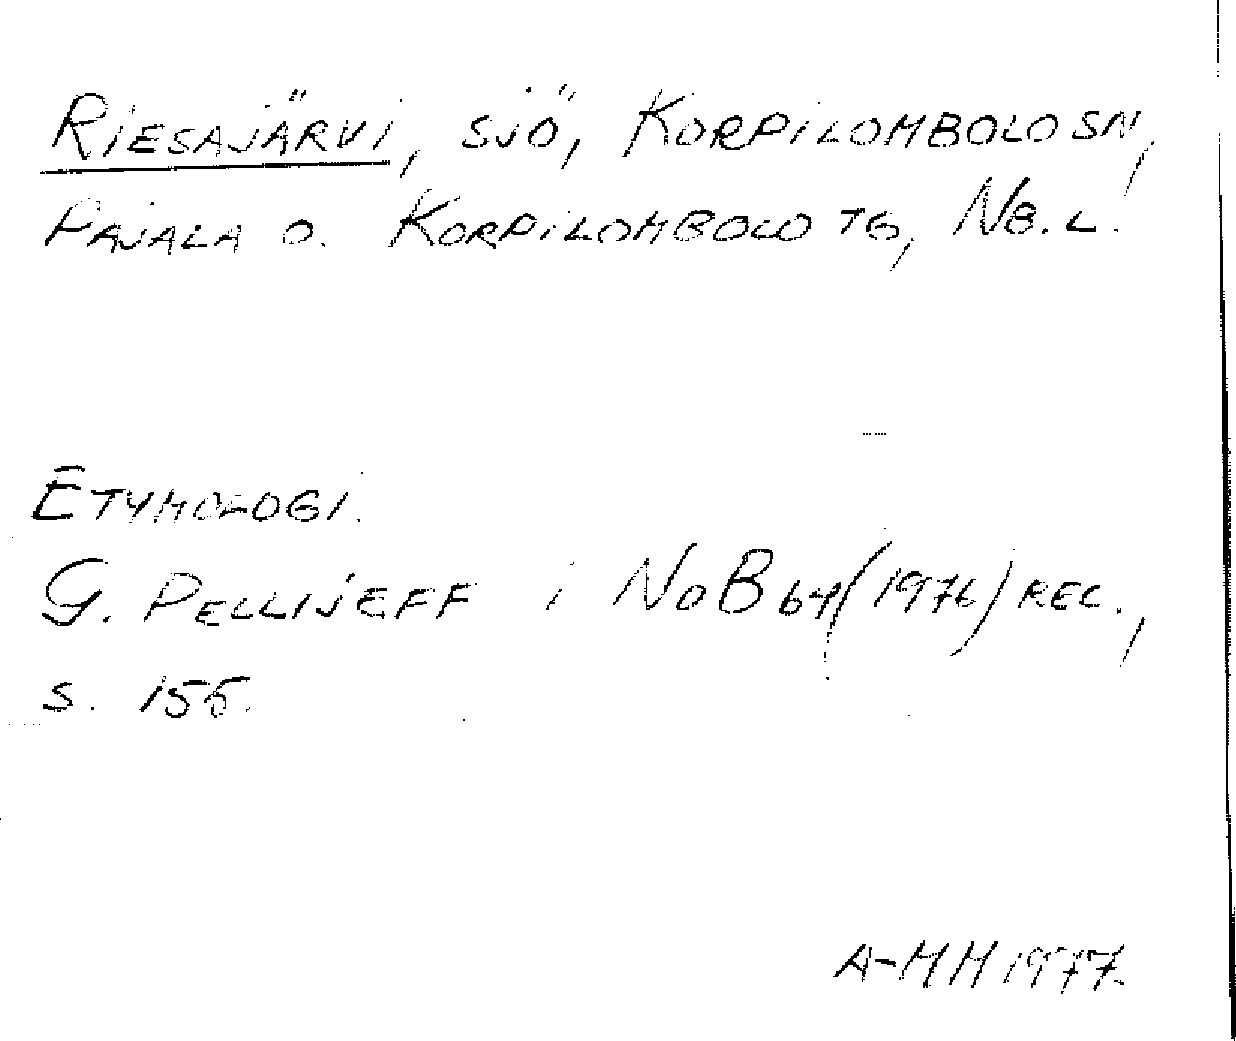 Riesajärvi, sjö, Korpilombolo sn,
Pajala o. Korpilombolo tg, Nb.l.
Etymologi.
G. Pellijeff i NoB 64 (1976) rec.,
s. 155.
A-MH 1977.